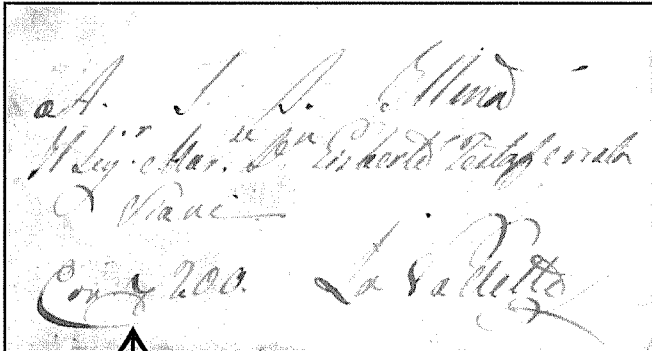 A. S. S. Illma
Il Sig.r Mar. D.n Gisberto Testaferrata
Viani
Con 200. La Valletta